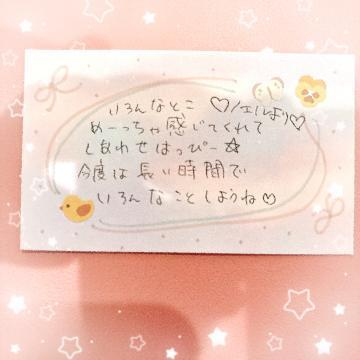 いろんなとこ ♡ノエルより♡
めーっちゃ感じてくれて
しあわせはっぴー☆
今度は長い時間で
いろんなことしようね♡